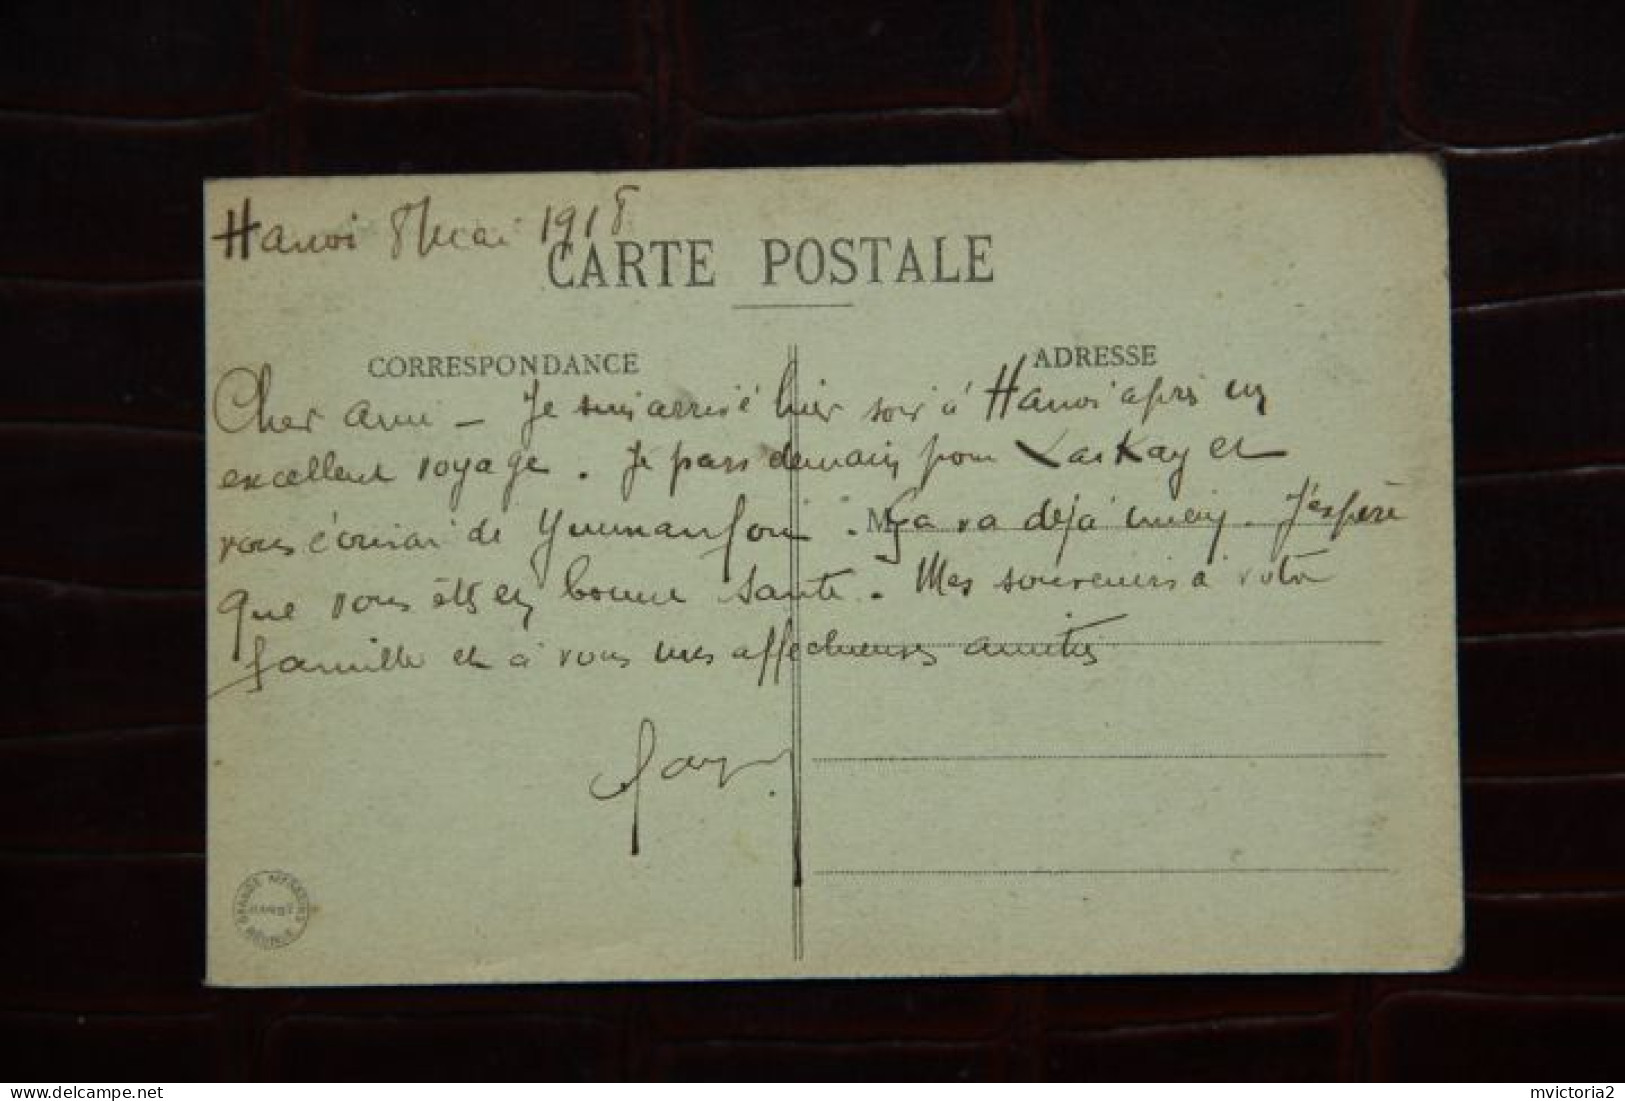 Hanoi 8 Mai 1918
CARTE POSTALE
CORRESPONDANCE
ADRESSE
Cher ami - Je suis arrivé hier soir à Hanoi après un
excellent voyage. Je pars demain pour Laokay et
vous écrirai de Yunnanfou. Ça va déjà mieux. J'espère
M
que vous êtes en bonne santé. Mes souvenirs à votre
famille et à vous mes affectueuses amitiés
GRANDS MAGASINS RÉUNIS
mvictoria2
Delcampe.net